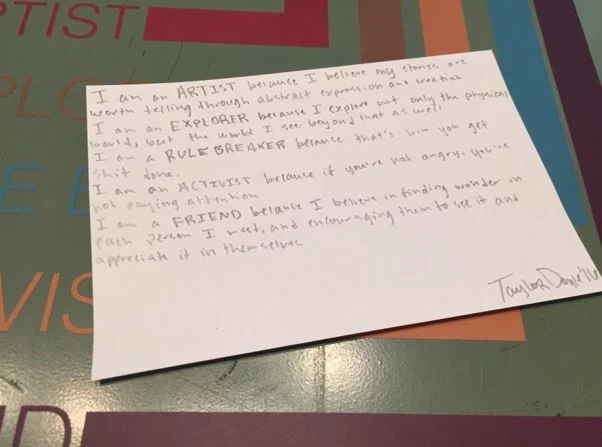 TIST
I am an ARTIST because I believe my stories are
worth telling through abstract expression and creation
I am an EXPLORER because I explore not only the physical
world, but the world I see beyond that as well
I am a RULE BREAKER because that's how you get
shit done.
I am an ACTIVIST because if you're not angry, you're
not paying attention
I am a FRIEND because I believe in finding wonder in
each person I meet, and encouraging them to see it and
appreciate it in themselves
Taylor Doyle '16
PLO
E B
VIS
ND